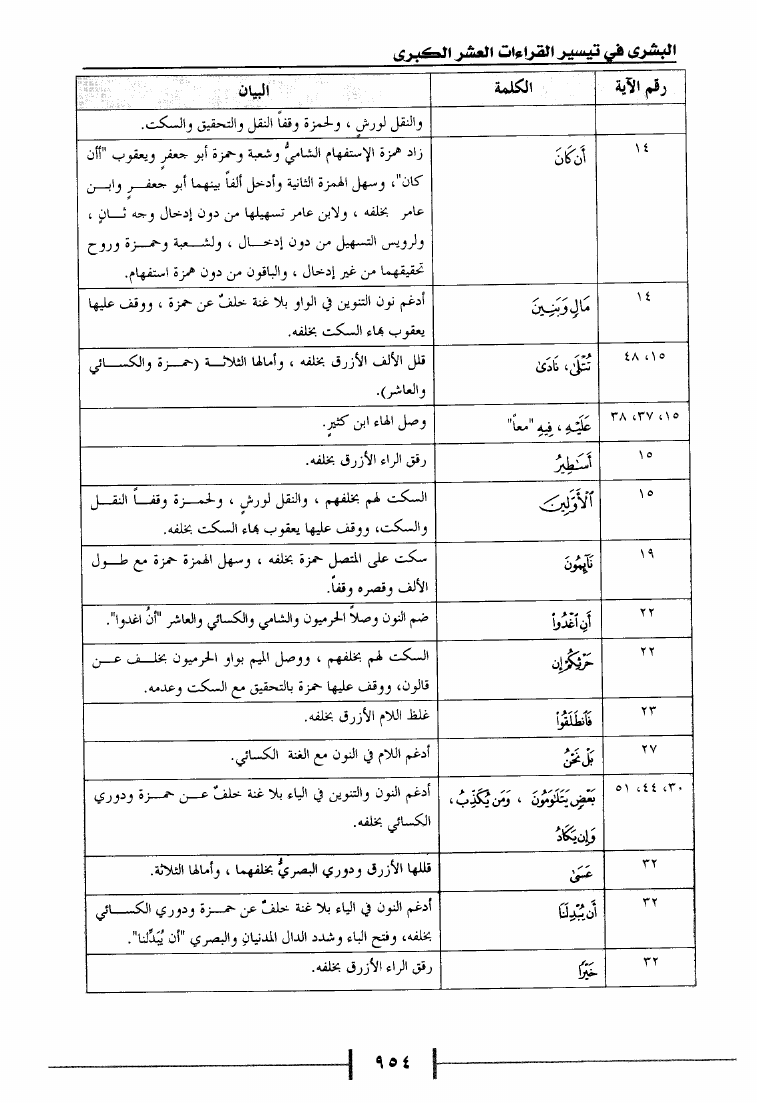 البشرى في تيسير القراءات العشر الكبرى
رقم الآية الكلمة البيان
والنقل لورشٍ ، ولحمزة وقفاً النقل والتحقيق والسكت.
١٤ أَن كَانَ زاد همزة الإستفهام الشاميُّ وشعبة وحمزة أبو جعفرٍ ويعقوب "أأن
كان"، وسهل الهمزة الثانية وأدخل ألفاً بينهما أبو جعفـرٍ وابـن
عامر بخلفه ، ولابن عامر تسهيلها من دون إدخال وجه ثـانٍ ،
ولرويس التسهيل من دون إدخـال ، ولشـعبة وحمـزة وروح
تحقيقهما من غير إدخال ، والباقون من دون همزة استفهام.
١٤ مَالٍ وَبَنِينَ أدغم نون التنوين في الواو بلا غنة خلفٌ عن حمزة ، ووقف عليها
يعقوب بهاء السكت بخلفه.
١٥، ٤٨ تُتْلَىٰ، نَادَىٰ قلل الألف الأزرق بخلفه ، وأمالها الثلاثـة (حمـزة والكسـائي
والعاشر).
١٥، ٣٧، ٣٨ عَلَيْهِ ، فِيهِ "معاً" وصل الهاء ابن كثيرٍ.
١٥ أَسَٰطِيرُ رقق الراء الأزرق بخلفه.
١٥ ٱلْأَوَّلِينَ السكت لهم بخلفهم ، والنقل لورشٍ ، ولحمـزة وقفـاً النقـل
والسكت، ووقف عليها يعقوب بهاء السكت بخلفه.
١٩ نَآئِمُونَ سكت على المتصل حمزة بخلفه ، وسهل الهمزة حمزة مع طـول
الألف وقصره وقفاً.
٢٢ أَنِ ٱغْدُوا۟ ضم النون وصلاً الحرميون والشامي والكسائي والعاشر "أنُ اغدوا".
٢٢ حَرْثِكُمْ إِن السكت لهم بخلفهم ، ووصل الميم بواو الحرميون بخلـف عـن
قالون، ووقف عليها حمزة بالتحقيق مع السكت وعدمه.
٢٣ فَٱنطَلَقُوا۟ غلظ اللام الأزرق بخلفه.
٢٧ بَلْ نَحْنُ أدغم اللام في النون مع الغنة الكسائي.
٣٠، ٤٤، ٥١ بَعْضٍ يَتَلَٰوَمُونَ ، وَمَن يُكَذِّبُ ، أدغم النون والتنوين في الياء بلا غنة خلفٌ عـن حمـزة ودوري
وَإِن يَكَادُ الكسائي بخلفه.
٣٢ عَسَىٰ قللها الأزرق ودوري البصريُّ بخلفهما ، وأمالها الثلاثة.
٣٢ أَن يُبْدِلَنَا أدغم النون في الياء بلا غنة خلفٌ عن حمـزة ودوري الكسـائي
بخلفه، وفتح الباء وشدد الدال المدنيان والبصري "أن يُبَدِّلنا".
٣٢ خَيْرًا رقق الراء الأزرق بخلفه.
٩٥٤